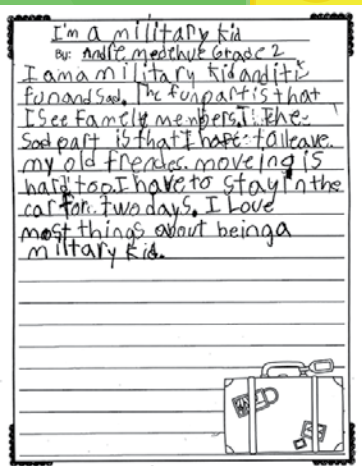 I'm a military kid
By: Andre medehue Grade 2
I am a military kid and it is
fun and sad. The fun part is that
I See Family members. The
Sad part is that I have to leave
my old frendes. moveing is
hard too. I have to stay in the
car for two days. I Love
most things about being a
miltary kid.